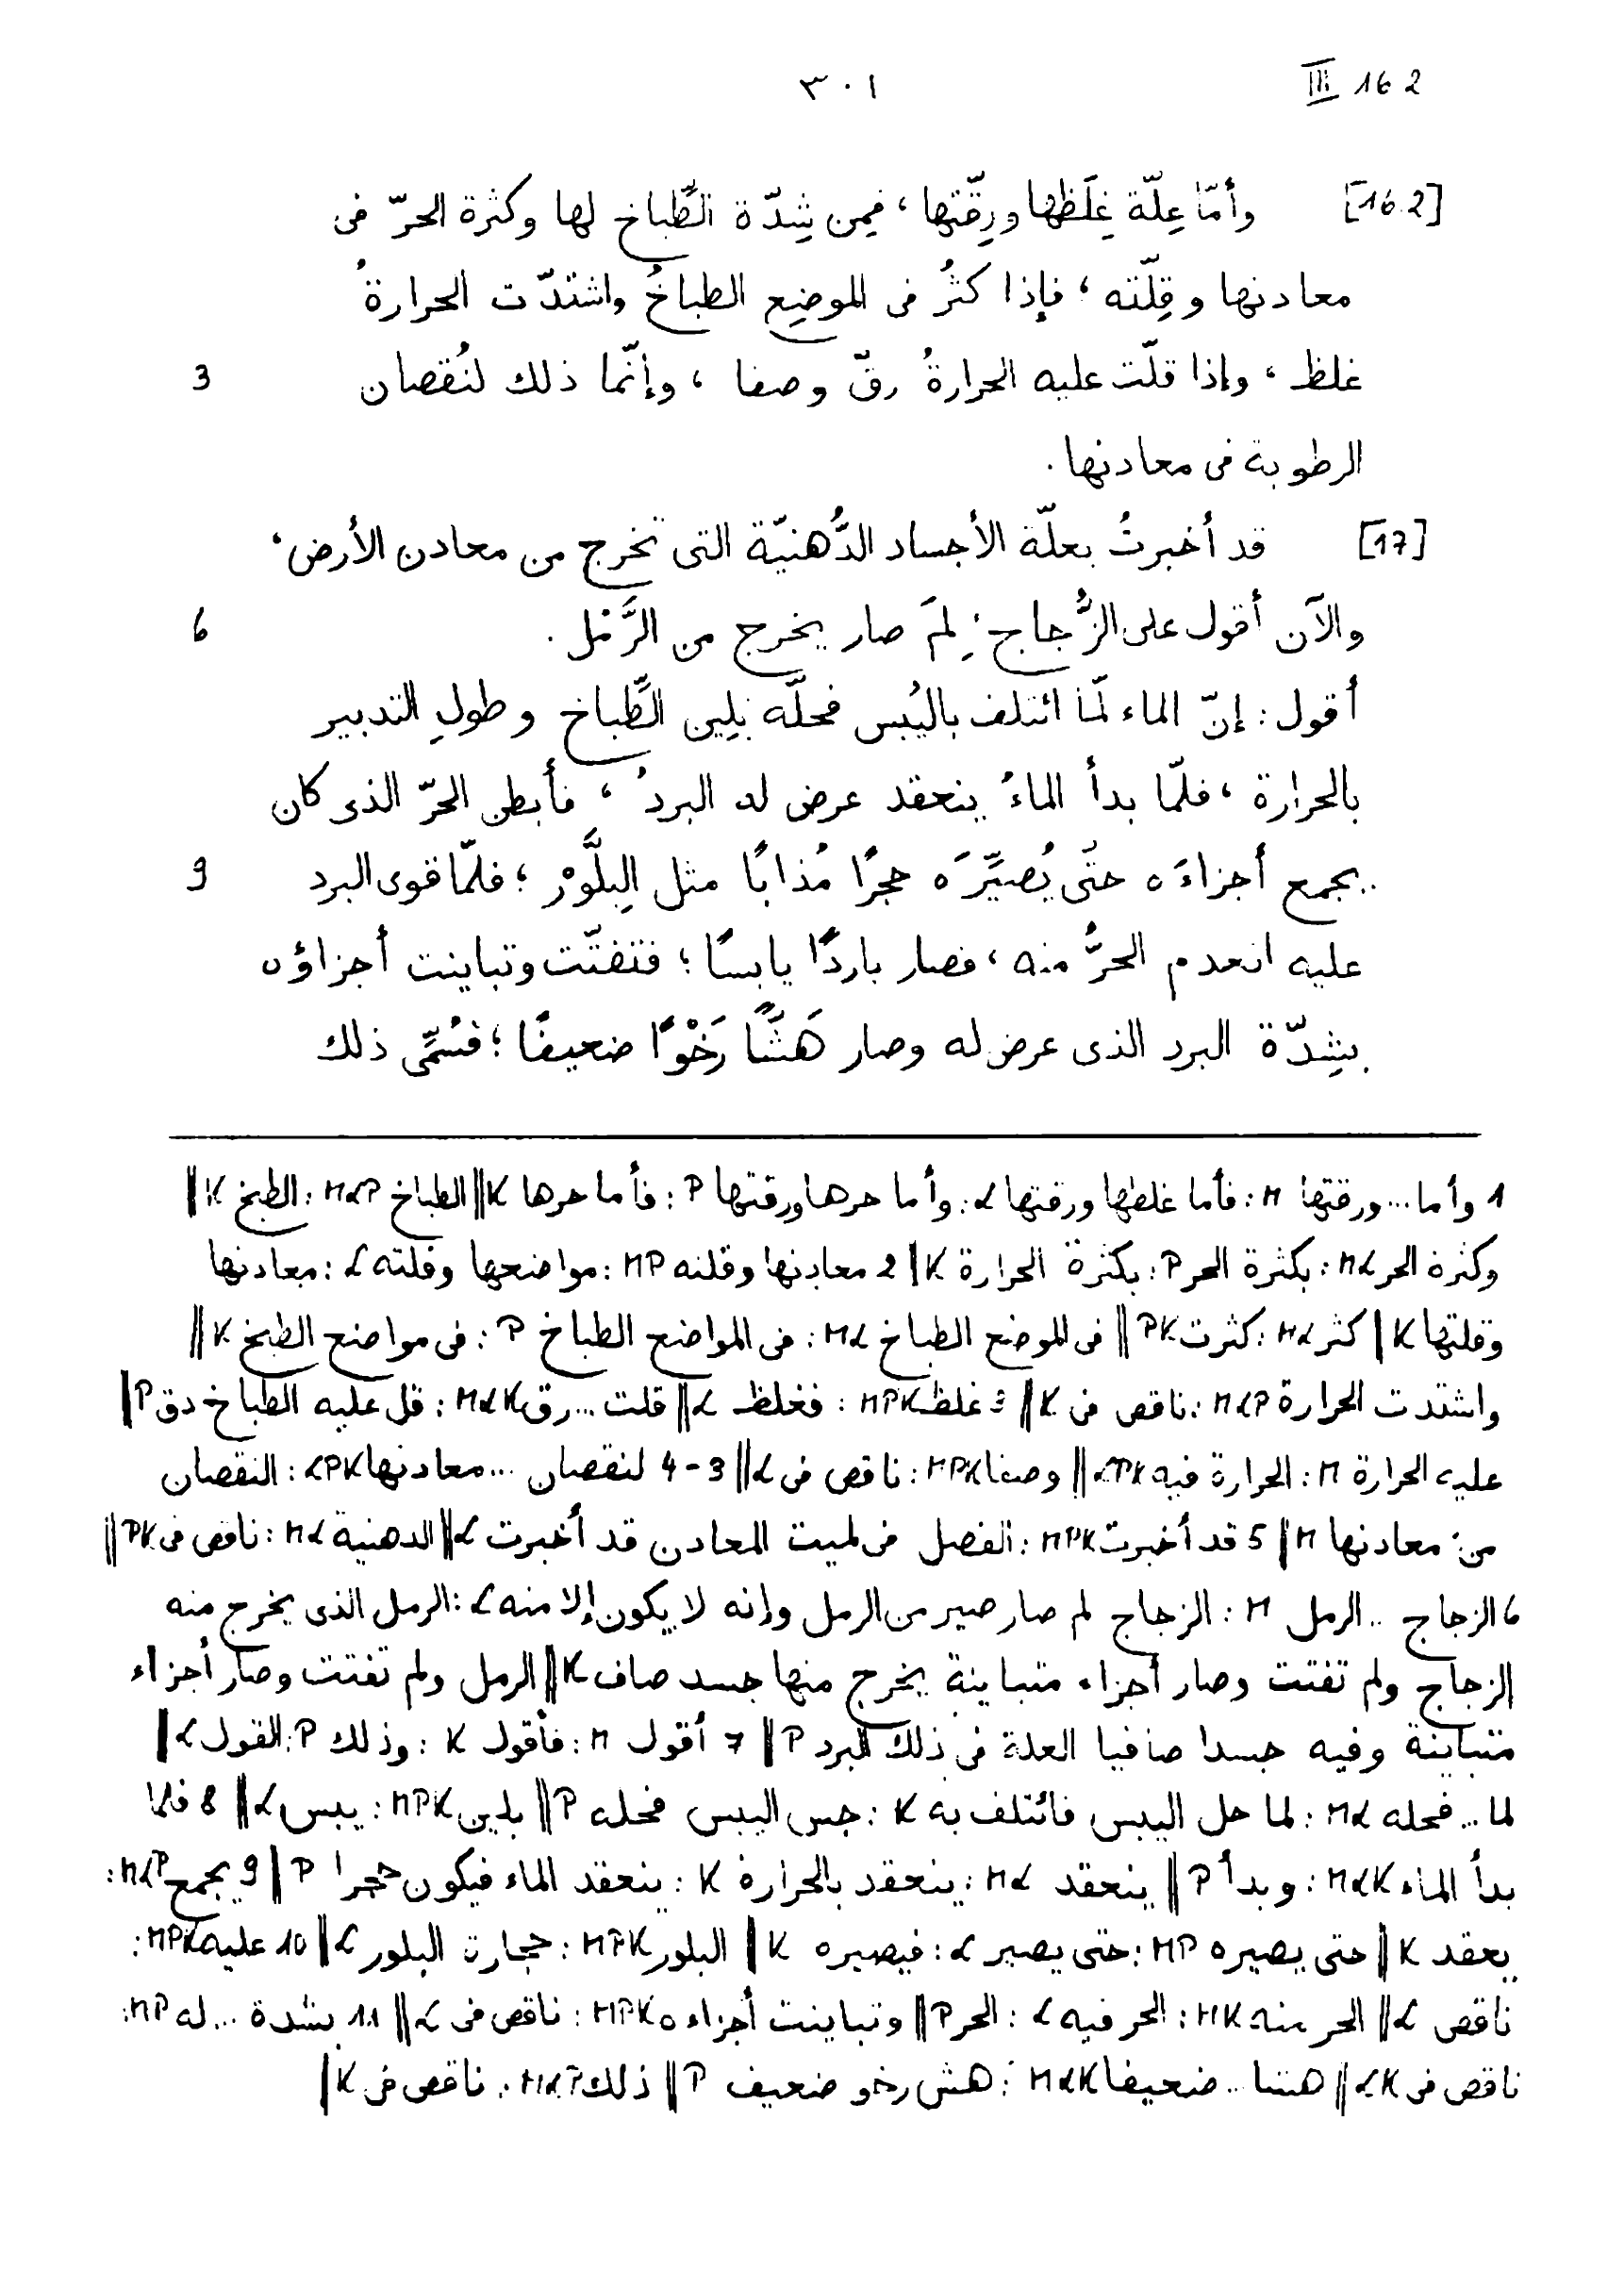 ٣٠١ III 16 2
[16.2] وأمّا عِلّة غِلَظها ورِقّتها، فمِن شِدّة الطَّباخ لها وكثرة الحرّ فى
معادنها وقِلّته؛ فإذا كثُر فى الموضِع الطباخُ واشتدّت الحرارةُ
غلظ، وإذا قلّت عليه الحرارةُ رقّ وصفا، وإنّما ذلك لنُقصان 3
الرطوبة فى معادنها.
[17] قد أخبرتُ بعلّة الأجساد الدُّهنيّة التى تخرج من معادن الأرض،
والآن أقول على الزُّجاج: لِمَ صار يخرج من الرَّمْل. 6
أقول: إنّ الماء لمّا ائتلف باليُبس فحلّه بلِين الطَّباخ وطولِ التدبير
بالحرارة، فلمّا بدأ الماءُ ينعقد عرض له البردُ، فأبطن الحرّ الذى كان
يجمع أجزاءَه حتّى يُصيِّرَه حجرًا مُذابًا مثل البِلَّوْر؛ فلمّا قوى البرد 9
عليه انعدم الحرُّ منه، فصار باردًا يابسًا؛ فتفتّت وتباينت أجزاؤه
بشِدّة البرد الذى عرض له وصار هَشًّا رَخْوًا ضعيفًا؛ فسُمِّى ذلك
1 وأما...ورقتها M: فأما غلظها ورقتها L: وأما حرها ورقتها P: فأما حرها K || الطباخ MLP: الطبخ K ||
وكثرة الحر ML: بكثرة الحر P: بكثرة الحرارة K || 2 معادنها وقلته MP: مواضعها وقلته L: معادنها
وقلتها K | كثر ML: كثرت PK || فى الموضع الطباخ ML: فى المواضع الطباخ P: فى مواضع الطبخ K ||
واشتدت الحرارة MLP: ناقص فى K || 3 غلظ MPK: فغلظ L || قلت...رق MLK: قل عليه الطباخ دق P ||
عليه الحرارة M: الحرارة فيه LPK || وصفا MPK: ناقص فى L || 3-4 لنقصان...معادنها LPK: النقصان
من معادنها M || 5 قد أخبرت MPK: الفصل فى لميت المعادن قد أخبرت L || الدهنية ML: ناقص فى PK ||
6 الزجاج..الرمل M: الزجاج لم صار صير من الرمل وإنه لا يكون إلا منه L: الرمل الذى يخرج منه
الزجاج ولم تفتت وصار أجزاء متباينة يخرج منها جسد صاف K || الرمل ولم تفتت وصار أجزاء
متباينة وفيه جسدا صافيا العلة فى ذلك البرد P || 7 أقول M: فأقول K: وذلك P: القول L ||
لما...فحله ML: لما حل اليبس فائتلف به K: جس اليبس فحله P || بلين MPK: يبس L || 8 فلما
بدأ الماء MLK: وبدأ P || ينعقد ML: ينعقد بالحرارة K: ينعقد الماء فيكون حجرا P || 9 يجمع MLP:
يعقد K || حتى يصيره MP: حتى يصير L: فيصيره K || البلور MPK: حجارة البلور L || 10 عليه MPK:
ناقص L || الحر منه MK: الحر فيه L: الحر P || وتباينت أجزاءه MPK: ناقص فى L || 11 بشدة...له MP:
ناقص فى LK || هشا...ضعيفا MLK: هش رخو ضعيف P || ذلك MLP: ناقص فى K ||